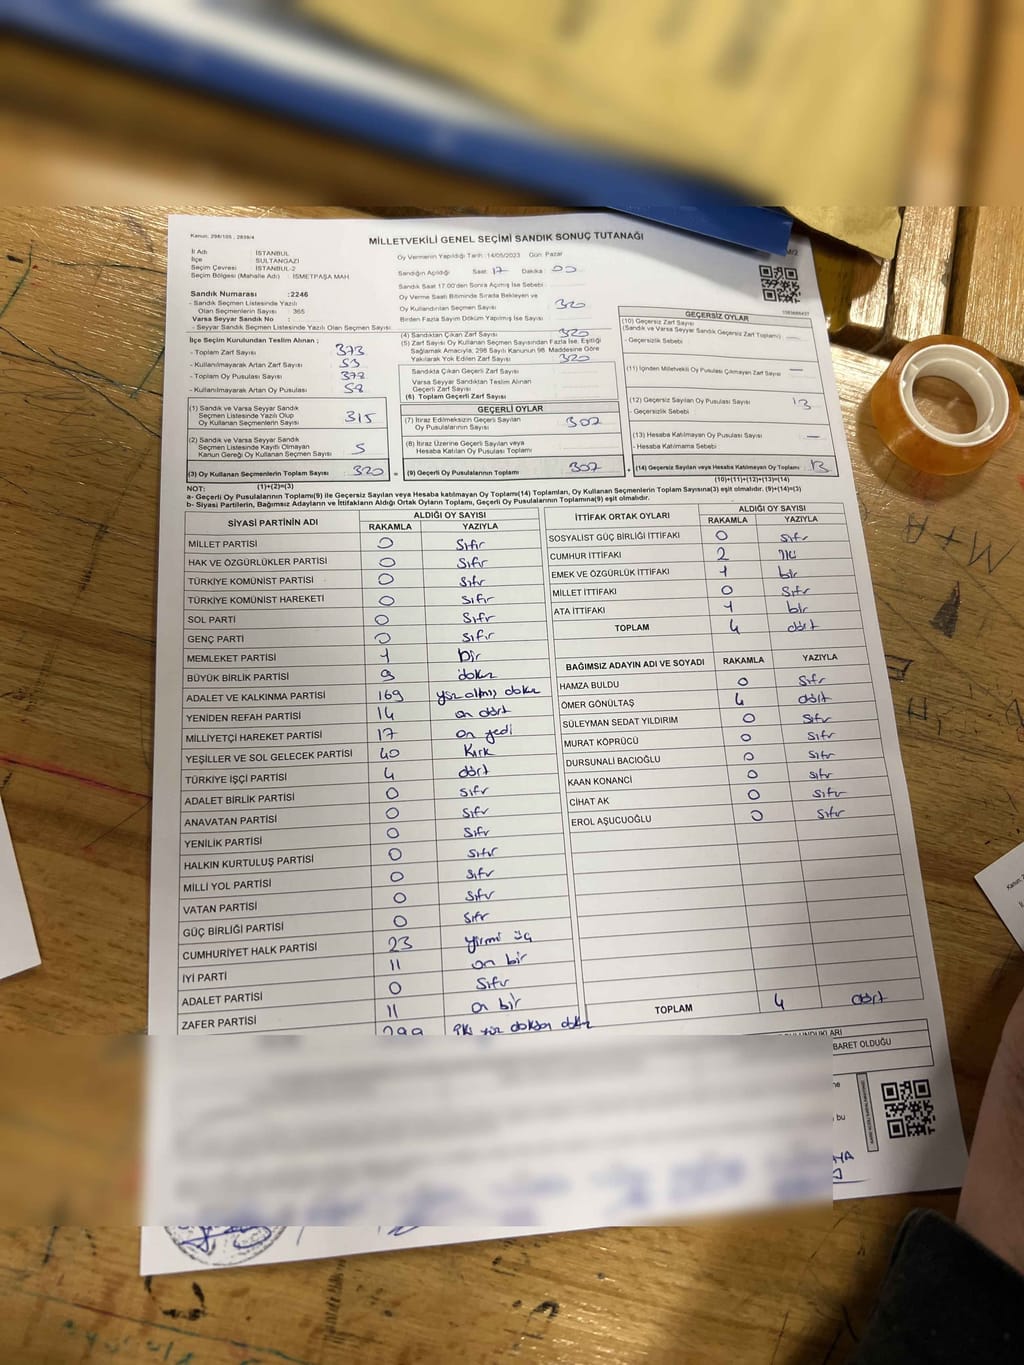 Kanun: 298/105 ; 2839/4
MİLLETVEKİLİ GENEL SEÇİMİ SANDIK SONUÇ TUTANAĞI
İl Adı : İSTANBUL
İlçe : SULTANGAZİ
Seçim Çevresi : İSTANBUL-2
Seçim Bölgesi (Mahalle Adı) : İSMETPAŞA MAH
Sandık Numarası :2246
- Sandık Seçmen Listesinde Yazılı
Olan Seçmenlerin Sayısı : 365
Varsa Seyyar Sandık No :
- Seyyar Sandık Seçmen Listesinde Yazılı Olan Seçmen Sayısı:
İlçe Seçim Kurulundan Teslim Alınan ;
- Toplam Zarf Sayısı 373
- Kullanılmayarak Artan Zarf Sayısı 53
- Toplam Oy Pusulası Sayısı
- Kullanılmayarak Artan Oy Pusulası 58
(1) Sandık ve Varsa Seyyar Sandık
Seçmen Listesinde Yazılı Olup
Oy Kullanan Seçmenlerin Sayısı 315
(2) Sandık ve Varsa Seyyar Sandık
Seçmen Listesinde Kayıtlı Olmayan
Kanun Gereği Oy Kullanan Seçmenlerin Sayısı 5
(3) Oy Kullanan Seçmenlerin Toplam Sayısı 320
Oy Vermenin Yapıldığı Tarih :14/05/2023 Gün: Pazar
Sandığın Açıldığı Saat: 17 Dakika : 00
Sandık Saat 17.00'den Sonra Açılmış İse Sebebi :
Oy Verme Saati Bitiminde Sırada Bekleyen ve
Oy Kullandırılan Seçmen Sayısı 320
Birden Fazla Sayım Döküm Yapılmış İse Sayısı
(4) Sandıktan Çıkan Zarf Sayısı 320
(5) Zarf Sayısı Oy Kullanan Seçmen Sayısından Fazla İse, Eşitliği
Sağlamak Amacıyla, 298 Sayılı Kanunun 98. Maddesine Göre
Yakılarak Yok Edilen Zarf Sayısı 320
Sandıkta Çıkan Geçerli Zarf Sayısı
Varsa Seyyar Sandıktan Teslim Alınan
Geçerli Zarf Sayısı
(6) Toplam Geçerli Zarf Sayısı
GEÇERLİ OYLAR
(7) İtiraz Edilmeksizin Geçerli Sayılan
Oy Pusulalarının Sayısı 307
(8) İtiraz Üzerine Geçerli Sayılan veya
Hesaba Katılan Oy Pusulası Toplamı
= (9) Geçerli Oy Pusulalarının Toplamı 307
GEÇERSİZ OYLAR
(10) Geçersiz Zarf Sayısı
(Sandık ve Varsa Seyyar Sandık Geçersiz Zarf Toplamı)
- Geçersizlik Sebebi
(11) İçinden Milletvekili Oy Pusulası Çıkmayan Zarf Sayısı —
(12) Geçersiz Sayılan Oy Pusulası Sayısı 13
- Geçersizlik Sebebi
(13) Hesaba Katılmayan Oy Pusulası Sayısı —
- Hesaba Katılmama Sebebi
+ (14) Geçersiz Sayılan veya Hesaba Katılmayan Oy Toplamı 13
NOT: (1)+(2)=(3)
(10)+(11)+(12)+(13)=(14)
a- Geçerli Oy Pusulalarının Toplamı(9) ile Geçersiz Sayılan veya Hesaba katılmayan Oy Toplamı(14) Toplamları, Oy Kullanan Seçmenlerin Toplam Sayısına(3) eşit olmalıdır. (9)+(14)=(3)
b- Siyasi Partilerin, Bağımsız Adayların ve İttifakların Aldığı Ortak Oyların Toplamı, Geçerli Oy Pusulalarının Toplamına(9) eşit olmalıdır.
SİYASİ PARTİNİN ADI ALDIĞI OY SAYISI
RAKAMLA YAZIYLA
MİLLET PARTİSİ 0 Sıfır
HAK VE ÖZGÜRLÜKLER PARTİSİ 0 Sıfır
TÜRKİYE KOMÜNİST PARTİSİ 0 Sıfır
TÜRKİYE KOMÜNİST HAREKETİ 0 Sıfır
SOL PARTİ 0 Sıfır
GENÇ PARTİ 0 Sıfır
MEMLEKET PARTİSİ 1 bir
BÜYÜK BİRLİK PARTİSİ 9 dokuz
ADALET VE KALKINMA PARTİSİ 169 yüz altmış dokuz
YENİDEN REFAH PARTİSİ 14 on dört
MİLLİYETÇİ HAREKET PARTİSİ 17 on yedi
YEŞİLLER VE SOL GELECEK PARTİSİ 40 Kırk
TÜRKİYE İŞÇİ PARTİSİ 4 dört
ADALET BİRLİK PARTİSİ 0 Sıfır
ANAVATAN PARTİSİ 0 Sıfır
YENİLİK PARTİSİ 0 Sıfır
HALKIN KURTULUŞ PARTİSİ 0 Sıfır
MİLLİ YOL PARTİSİ 0 Sıfır
VATAN PARTİSİ 0 Sıfır
GÜÇ BİRLİĞİ PARTİSİ 0 Sıfır
CUMHURİYET HALK PARTİSİ 23 yirmi üç
İYİ PARTİ 11 on bir
ADALET PARTİSİ 0 Sıfır
ZAFER PARTİSİ 11 on bir
299 iki yüz doksan dokuz
İTTİFAK ORTAK OYLARI ALDIĞI OY SAYISI
RAKAMLA YAZIYLA
SOSYALİST GÜÇ BİRLİĞİ İTTİFAKI 0 Sıfır
CUMHUR İTTİFAKI 2 iki
EMEK VE ÖZGÜRLÜK İTTİFAKI 1 bir
MİLLET İTTİFAKI 0 Sıfır
ATA İTTİFAKI 1 bir
TOPLAM 4 dört
BAĞIMSIZ ADAYIN ADI VE SOYADI RAKAMLA YAZIYLA
HAMZA BULDU 0 Sıfır
ÖMER GÖNÜLTAŞ 4 dört
SÜLEYMAN SEDAT YILDIRIM 0 Sıfır
MURAT KÖPRÜCÜ 0 Sıfır
DURSUNALİ BACIOĞLU 0 Sıfır
KAAN KONANCİ 0 Sıfır
CİHAT AK 0 Sıfır
EROL AŞUCUOĞLU 0 Sıfır
TOPLAM 4 dört
BARET OLDUĞU
bu
M+A